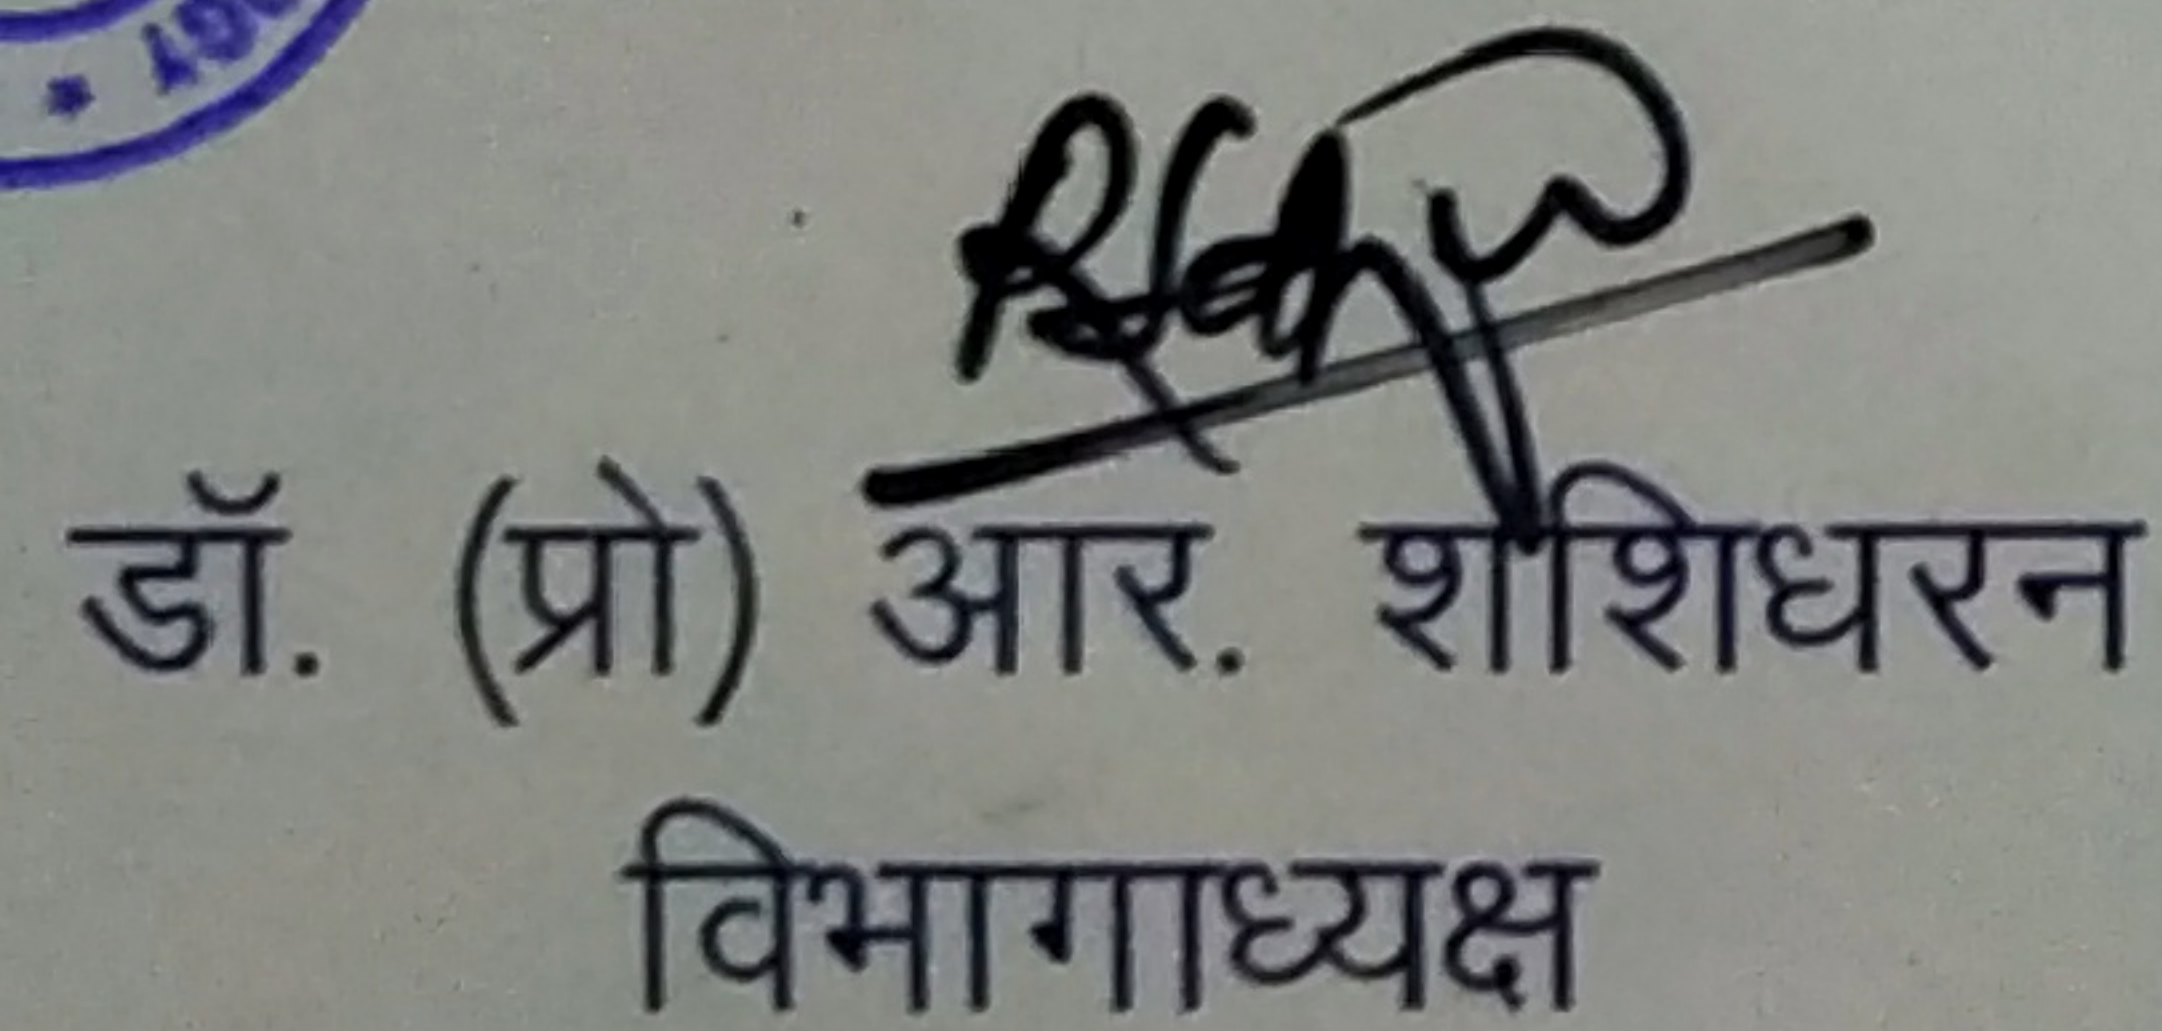 डॉ. (प्रो) आर. शशिधरन
विभागाध्यक्ष